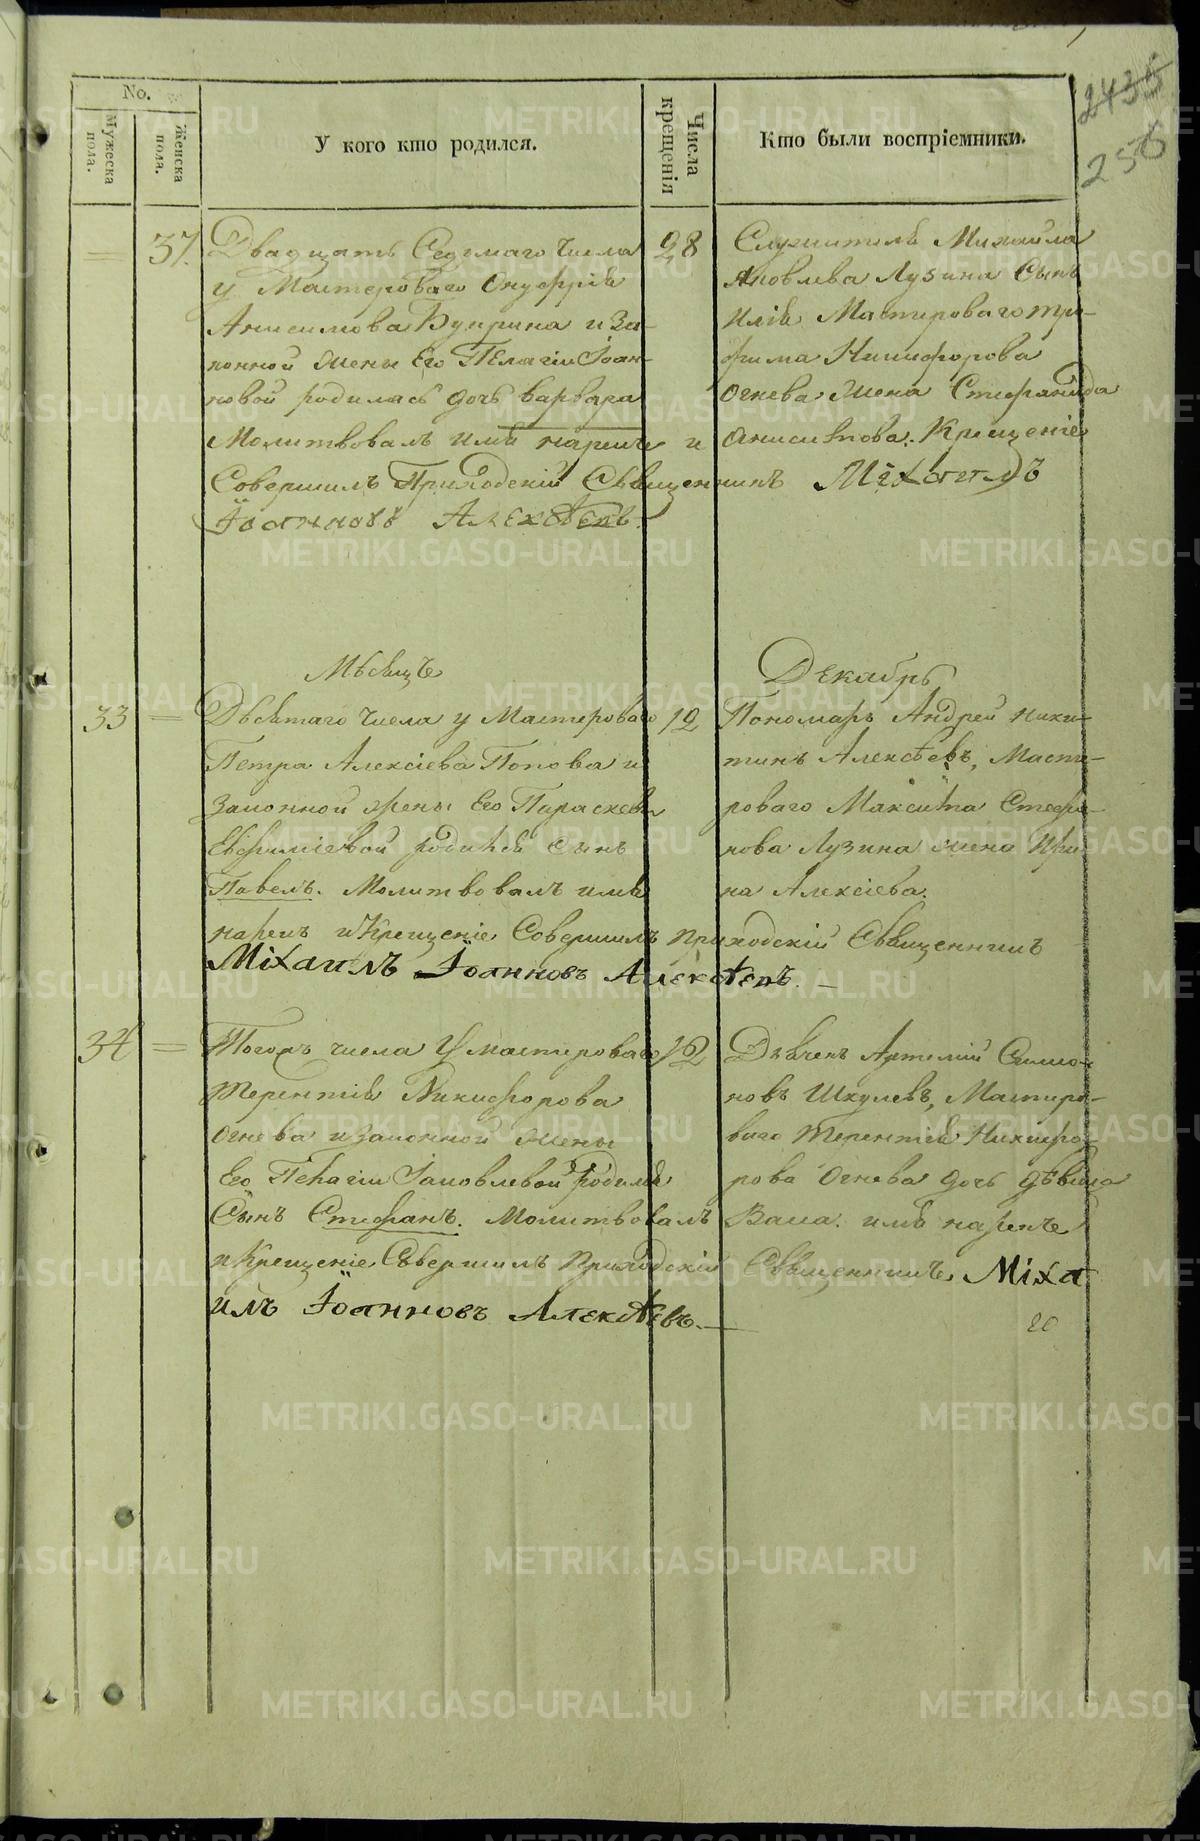 2435
256
No.
Мужеска пола.
Женска пола.
У кого кто родился.
Числа крещенія
Кто были воспріемники.
37.
Двадцать Седмаго Числа
у Мастероваго Онуфрія
Анисимова Куприна и за-
конной жены Его Пелагіи Іоан-
новой родилась дочь Варвара
Молитвовалъ имя нарекъ и
Совершилъ Приходскій Священникъ Міхаилъ
Іоанновъ Алексѣевъ.
28
Служитель Михайла
Яковлева Лузина Сынъ
Илія Мастероваго Тро-
фима Никифорова
Огнева Жена Стефанида
Анисимова. Крещеніе
Мѣсяцъ
Декабрь
33
Десятаго Числа у Мастероваго
Петра Алексіева Попова и
законной жены Его Параскевы
Евфиміевой родился Сынъ
Павелъ. Молитвовалъ имя
нарекъ и Крещеніе Совершилъ Приходскій Священникъ
Міхаилъ Іоанновъ Алексѣевъ.
12
Пономарь Андрей Ники-
тинъ Алексѣевъ, Масте-
роваго Максима Стефа-
нова Лузина жена Ири-
на Алексіева.
34
Тогожъ числа У мастероваго
Терентія Никифорова
Огнева и законной жены
Его Пелагіи Іаковлевой родился
Сынъ Стефанъ. Молитвовалъ
и Крещеніе Совершилъ Приходскій Священникъ Міха
илъ Іоанновъ Алексѣевъ.
12
Дьячекъ Артемій Симо-
новъ Шкулевъ, Мастеро-
ваго Терентія Никифо-
рова Огнева дочь дѣвица
Васса. имя нарекъ
20
METRIKI.GASO-URAL.RU